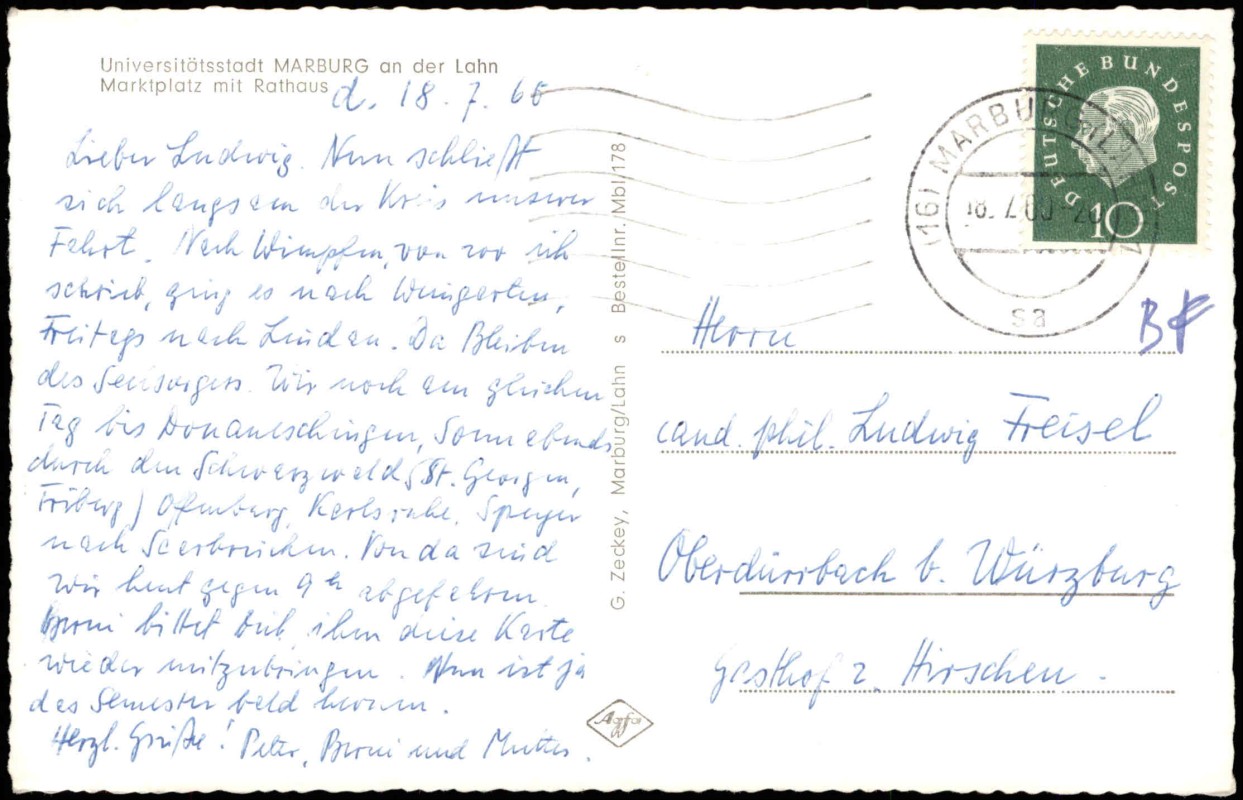 Universitätsstadt MARBURG an der Lahn
Marktplatz mit Rathaus
d. 18. 7. 60
Lieber Ludwig. Nun schließt
sich langsam der Kreis unserer
Fahrt. Nach Wimpfen, von wo ich
schrieb, ging es nach Weingarten,
Freitags nach Lindau. Da Bleiben
des Seelsorgers. Wir noch am gleichen
Tag bis Donaueschingen, Sonnabends
durch den Schwarzwald (St. Georgen,
Triberg) Offenburg, Karlsruhe, Speyer
nach Saarbrücken. Von da sind
wir heut gegen 9 h abgefahren.
Berni bittet Dich, ihm diese Karte
wieder mitzubringen. Nun ist ja
das Semester bald herum.
Herzl. Grüße! Peter, Berni und Mutter.
G. Zeckey, Marburg/Lahn s Bestellnr. Mbl/178
Agfa
DEUTSCHE BUNDESPOST
10
(16) MARBURG (LAHN)
18. 7. 60
sa
BF
Herrn
cand. phil. Ludwig Freisel
Oberdürrbach b. Würzburg
Gasthof z. Hirschen.